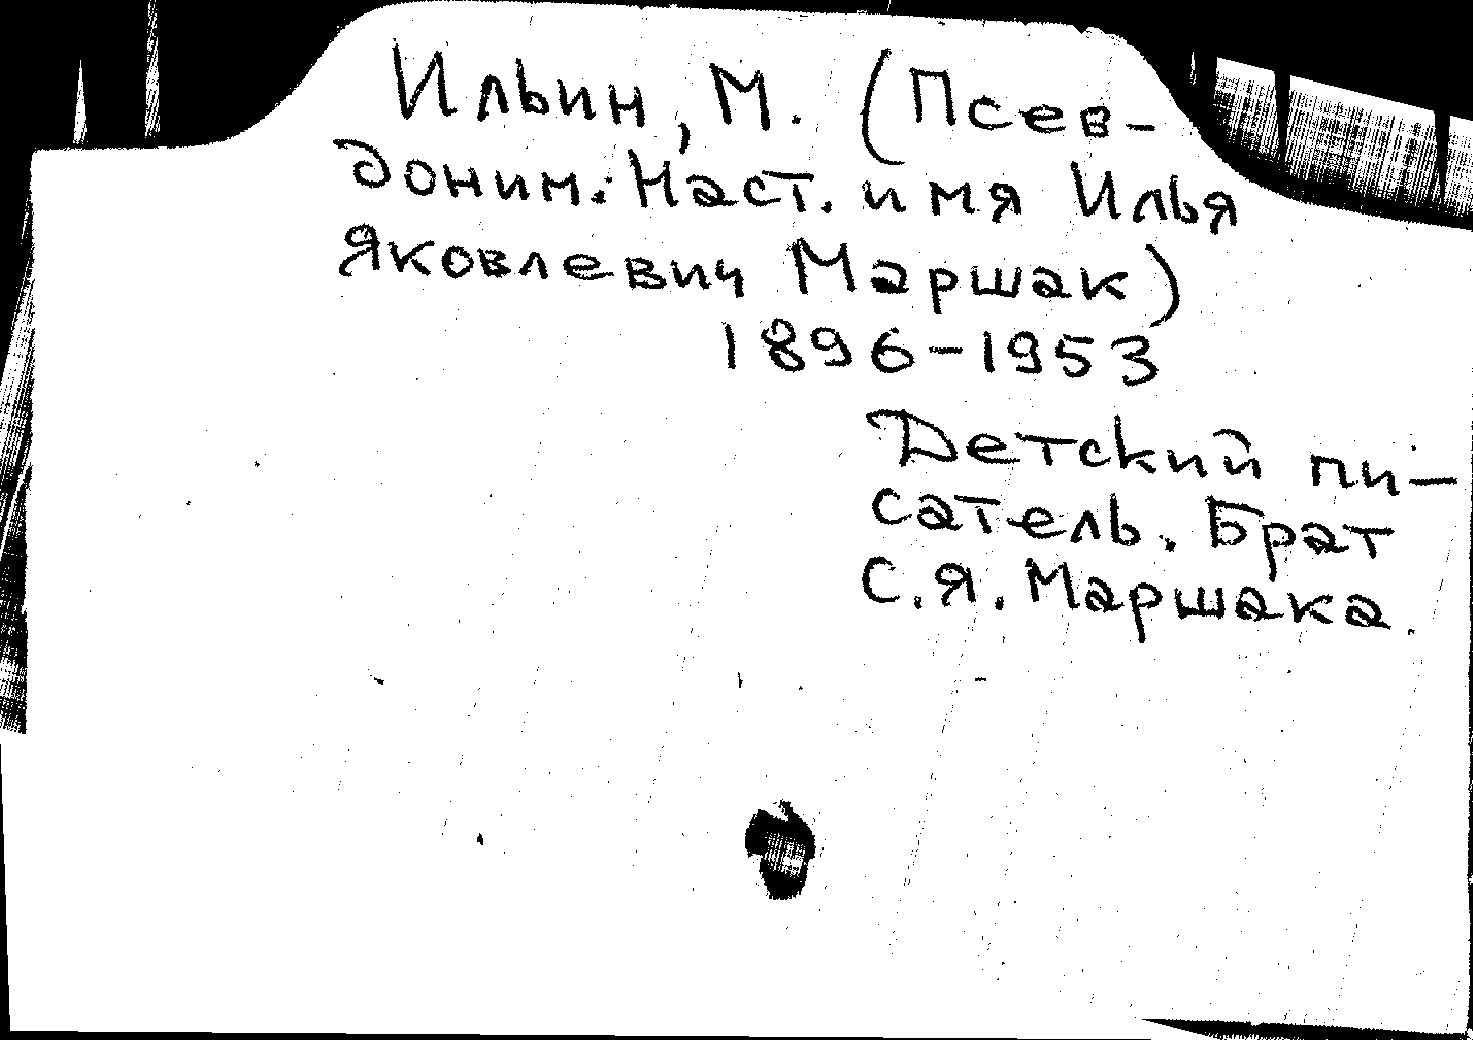 Ильин, М. (Псев-
доним. Наст. имя Илья
Яковлевич Маршак)
1896-1953
Детский пи-
сатель. Брат
С.Я. Маршака.